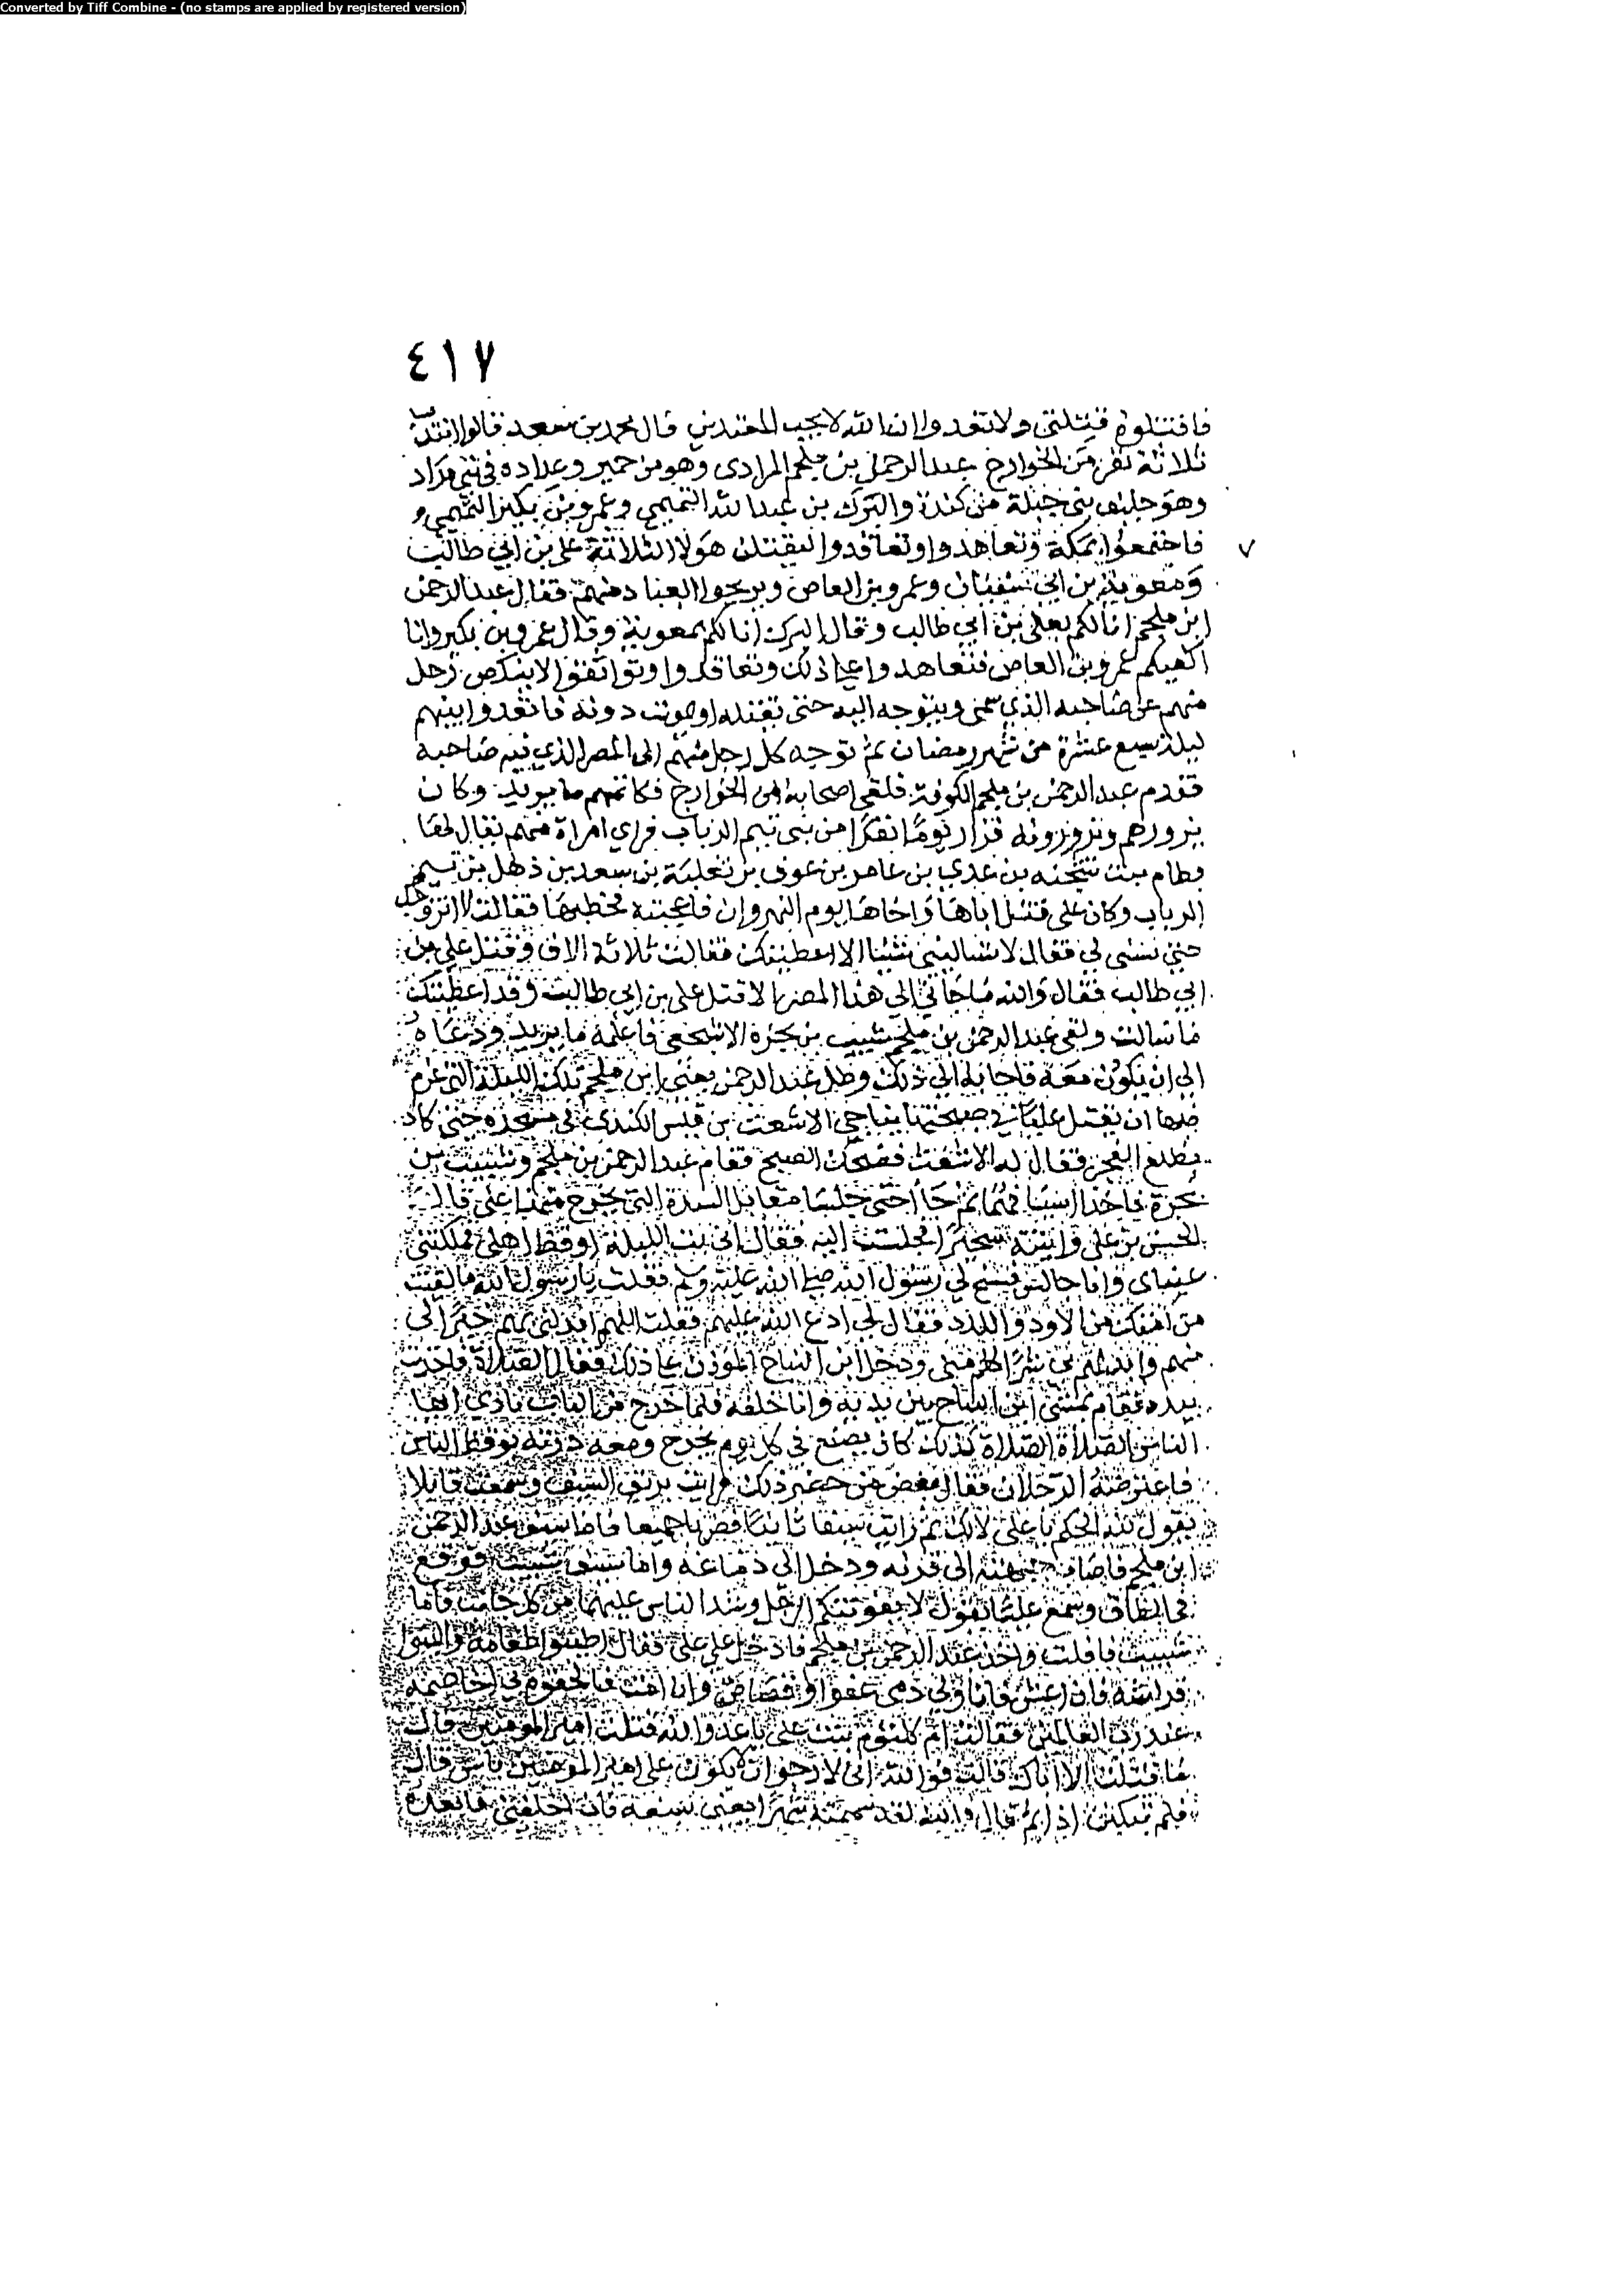 Converted by Tiff Combine - (no stamps are applied by registered version)
٤١٧
فاقتلوه قتلتي ولا تعتدوا ان الله لا يحب المعتدين قال محمد بن سعد قالوا انتدب
ثلاثة نفر من الخوارج عبد الرحمن بن ملجم المرادي وهو من حمير وعداده في بني مراد
وهو حليف بني جبلة من كندة والبرك بن عبد الله التميمي وعمرو بن بكير التميمي
فاجتمعوا بمكة وتعاهدوا وتعاقدوا ليقتلن هولا الثلاثة علي بن ابي طالب
ومعوية بن ابي سفيان وعمرو بن العاص ويريحوا العباد منهم فقال عبد الرحمن
ابن ملجم انا لكم بعلي بن ابي طالب وقال البرك انا لكم بمعوية وقال عمرو بن بكير وانا
اكفيكم عمرو بن العاص فتعاهدوا على ذلك وتعاقدوا وتواثقوا لا ينكص رجل
منهم عن صاحبه الذي سمى ويتوجه اليه حتى يقتله او يموت دونه فاتعدوا بينهم
ليلة سبع عشرة من شهر رمضان ثم توجه كل رجل منهم الى المصر الذي فيه صاحبه
فقدم عبد الرحمن بن ملجم الكوفة فلقي اصحابه من الخوارج فكاتمهم ما يريد وكان
يزورهم ويزورونه فزار يوما نفرا من بني تيم الرباب فراى امراة منهم يقال لها
قطام بنت شجنه بن عدي بن عامر بن عوف بن ثعلبة بن سعد بن ذهل بن تيم
الرباب وكان علي قتل اباها واخاها يوم النهروان فاعجبته فخطبها فقالت لا اتزوجك
حتى تسمي لي فقال لا تساليني شيئا الا اعطيتك فقالت ثلاثة الاف وقتل علي بن
ابي طالب فقال والله ما جا بي الى هذا المصر الا قتل علي بن ابي طالب وقد اعطيتك
ما سالت ولقي عبد الرحمن بن ملجم شبيب بن بجرة الاشجعي فاعلمه ما يريد ودعاه
الى ان يكون معه فاجابه الى ذلك وظل عبد الرحمن يعني ابن ملجم تلك الليلة التي عزم
فيها ان يقتل عليا في صبيحتها يناجي الاشعث بن قيس الكندي في مسجده حتى كاد
يطلع الفجر فقال له الاشعث فضحك الصبح فقام عبد الرحمن بن ملجم وشبيب بن
بجرة فاخذا اسيافهما ثم جاا حتى جلسا مقابل السدة التي يخرج منها علي قال
الحسن بن علي واتيته سحرا فجلست اليه فقال اني بت الليلة اوقظ اهلي فملكتني
عيناي وانا جالس فسنح لي رسول الله صلى الله عليه وسلم فقلت يا رسول الله ما لقيت
من امتك من الاود واللدد فقال لي ادع الله عليهم فقلت اللهم ابدلني بهم خيرا لي
منهم وابدلهم بي شرا لهم مني ودخل ابن النباح الموذن على ذلك فقال الصلاة فاخذت
بيده فقام يمشي ابن النباح بين يديه وانا خلفه فلما خرج من الباب نادى ايها
الناس الصلاة الصلاة كذلك كان يصنع في كل يوم يخرج ومعه درته يوقظ الناس
فاعترضه الرجلان فقال بعض من حضر ذلك فرايت بريق السيف وسمعت قايلا
يقول لله الحكم يا علي لا لك ثم رايت سيفا ثانيا فضربا جميعا فاما سيف عبد الرحمن
ابن ملجم فاصاب جبهته الى قرنه ودخل الى دماغه واما سيف شبيب فوقع
في الطاق وسمع عليا يقول لا يفوتنكم الرجل وشد الناس عليهما من كل جانب فاما
شبيب فافلت واخذ عبد الرحمن بن ملجم فادخل على علي فقال اطيبوا طعامه والينوا
فراشه فان اعش فانا ولي دمي عفوا وقصاص وان امت فالحقوه بي اخاصمه
عند رب العالمين فقالت ام كلثوم بنت علي يا عدو الله قتلت امير المومنين قال
ما قتلت الا اباك قالت فوالله اني لارجو ان لا يكون على امير المومنين باس قال
فلم تبكين اذا ثم قال والله لقد سممته شهرا يعني سيفه فان اخلفني فابعده